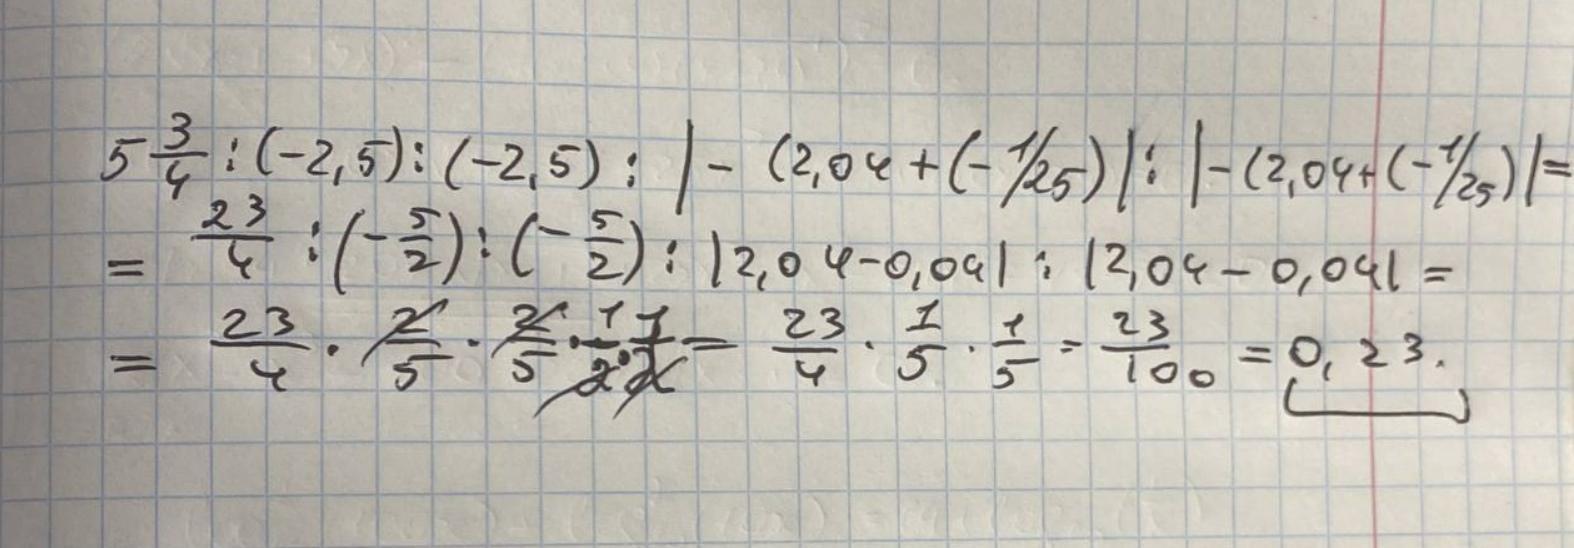 5 3/4 : (-2,5) : (-2,5) : |- (2,04 + (- 1/25)| : |- (2,04 + (- 1/25)| =
= 23/4 : (- 5/2) : (- 5/2) : |2,04 - 0,04| : |2,04 - 0,04| =
= 23/4 · 2/5 · 2/5 · 1/2 · 1/2 = 23/4 · 1/5 · 1/5 = 23/100 = 0,23.